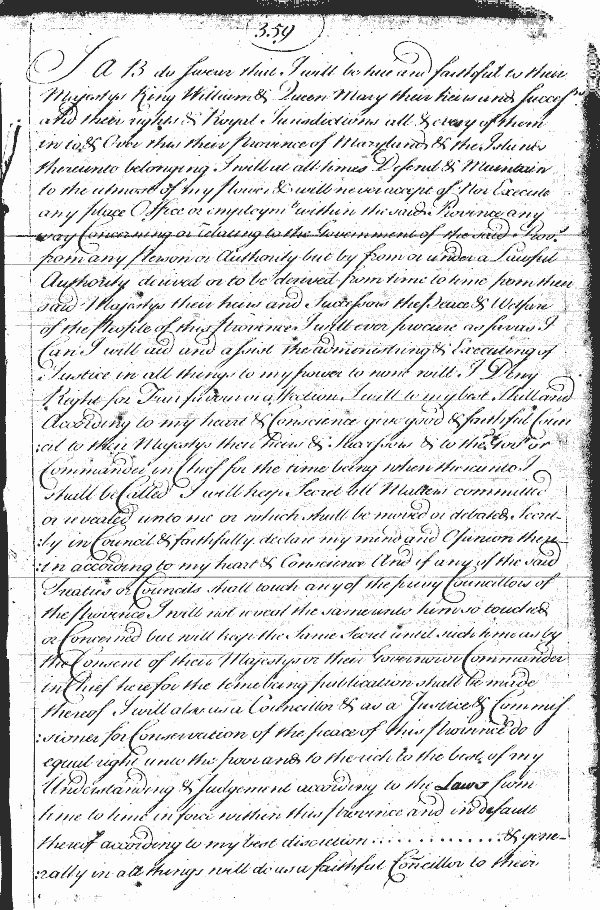 359
I A B do swear that I will be true and faithful to their
Majestys King William & Queen Mary their heirs and Success.rs
and their rights & Royal Jurisdictions all & every of them
in to & Over this their Province of Maryland & the Islands
thereunto belonging I will at all times Defend & Maintain
to the utmost of my power & will never accept of Nor Execute
any place Office or employm.t within the said Province any
way Concerning or relating to the Government of the said Prov.e
from any Person or Authority but by from or under a Lawful
Authority derived or to be derived from time to time from their
said Majestys their heirs and Successors the Peace & Welfare
of the People of this Province I will ever procure as far as I
Can I will aid and assist the administring & Executing of
Justice in all things to my power to none will I Deny
Right for Fear favour or Affection I will to my best Skill and
According to my heart & Conscience give good & faithful Coun
:cil to their Majestys their heirs & Successors & to the Gov.r or
Commander in Chief for the time being when thereunto I
shall be Called I will keep Secret all Matters committed
or revealed unto me or which shall be moved or debated Secret-
:ly in Council & faithfully declare my mind and Opinion there-
:in according to my heart & Conscience And if any of the said
Treaties or Councils shall touch any of the privy Councillors of
the Province I will not reveal the same unto him so touched
or Concerned but will keep the Same Secret until such time as by
the Consent of their Majestys or their Governor or Commander
in Chief here for the time being publication shall be made
thereof I will also as a Councillor & as a Justice & Commis
:sioner for Conservation of the peace of this Province do
equal right unto the poor and to the rich to the best of my
Understanding & Judgement according to the Laws from
time to time in force within this Province and in default
thereof according to my best discretion ............ & gene-
:rally in all things will do as a faithful Councillor to their